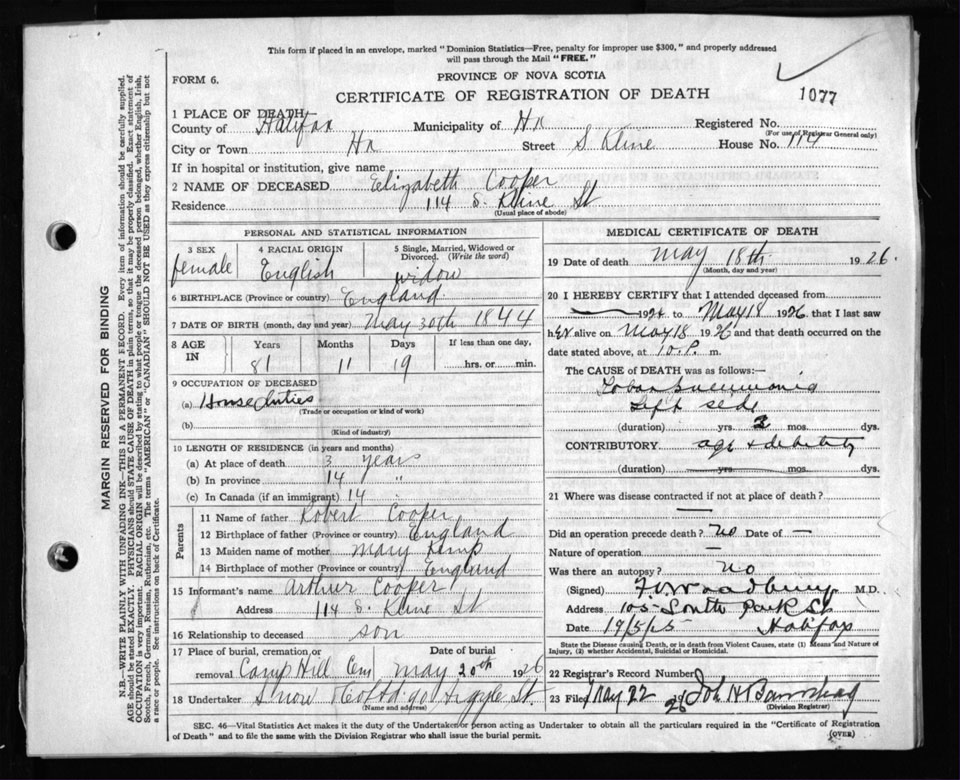 This form if placed in an envelope, marked "Dominion Statistics—Free, penalty for improper use $300," and properly addressed
will pass through the Mail "FREE."
FORM 6.
PROVINCE OF NOVA SCOTIA
CERTIFICATE OF REGISTRATION OF DEATH
1077
1 PLACE OF DEATH
County of Halifax Municipality of Hx Registered No.
(For use of Registrar General only)
City or Town Hx Street S Kline House No. 114
If in hospital or institution, give name
2 NAME OF DECEASED Elizabeth Cooper
Residence 114 S. Kline St
(Usual place of abode)
PERSONAL AND STATISTICAL INFORMATION
3 SEX 4 RACIAL ORIGIN 5 Single, Married, Widowed or Divorced. (Write the word)
female English widow
6 BIRTHPLACE (Province or country) England
7 DATE OF BIRTH (month, day and year) May 30th 1844
8 AGE IN Years Months Days If less than one day,
81 11 19 hrs. or min.
9 OCCUPATION OF DECEASED
(a) House duties
(Trade or occupation or kind of work)
(b)
(Kind of industry)
10 LENGTH OF RESIDENCE (in years and months)
(a) At place of death 3 years
(b) In province 14 "
(c) In Canada (if an immigrant) 14 "
Parents
11 Name of father Robert Cooper
12 Birthplace of father (Province or country) England
13 Maiden name of mother Mary Kemp
14 Birthplace of mother (Province or country) England
15 Informant's name Arthur Cooper
Address 114 S. Kline St
16 Relationship to deceased son
17 Place of burial, cremation or removal Camp Hill Cem Date of burial May 20th 1926
18 Undertaker Snow & Co Ltd 90 Argyle St.
(Name and address)
MEDICAL CERTIFICATE OF DEATH
19 Date of death May 18th 1926.
(Month, day and year)
20 I HEREBY CERTIFY that I attended deceased from
192 to May 18 1926, that I last saw
her alive on May 18 1926 and that death occurred on the
date stated above, at 10. P. m.
The CAUSE of DEATH was as follows:—
Lobar Pneumonia
Left side
(duration) yrs. mos. dys.
CONTRIBUTORY age & debility
(duration) yrs. mos. dys.
21 Where was disease contracted if not at place of death?
—
Did an operation precede death? No Date of —
Nature of operation —
Was there an autopsy? No
(Signed) Woodbury M.D.
Address 105 South Park St
Date 19/5/25 Halifax
State the Disease causing Death, or in death from Violent Causes, state (1) Means and Nature of
Injury, (2) whether Accidental, Suicidal or Homicidal.
22 Registrar's Record Number
23 Filed May 22 26 John H Barnstead
(Division Registrar)
SEC. 46—Vital Statistics Act makes it the duty of the Undertaker or person acting as Undertaker to obtain all the particulars required in the "Certificate of Registration
of Death" and to file the same with the Division Registrar who shall issue the burial permit.
(OVER)
MARGIN RESERVED FOR BINDING
N.B.—WRITE PLAINLY WITH UNFADING INK—THIS IS A PERMANENT RECORD. Every item of information should be carefully supplied.
AGE should be stated EXACTLY. PHYSICIANS should STATE CAUSE OF DEATH in plain terms, so that it may be properly classified. Exact statement of
OCCUPATION is very important. RACIAL ORIGIN will be described by stating to what people or tongue the deceased person belonged, whether English, Irish,
Scotch, French, German, Russian, Ruthenian, etc. The terms "AMERICAN" or "CANADIAN" SHOULD NOT BE USED as they express citizenship but not
a race or people. See instructions on back of Certificate.